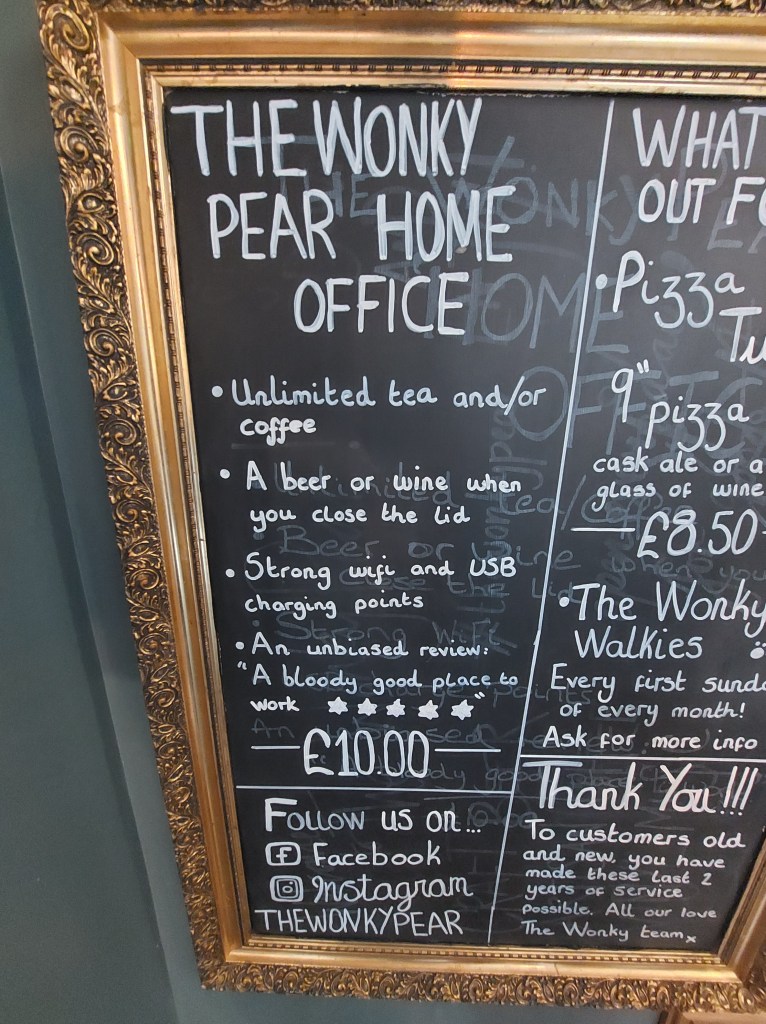 THE WONKY
PEAR HOME
OFFICE
• Unlimited tea and/or
coffee
• A beer or wine when
you close the lid
• Strong wifi and USB
charging points
• An unbiased review:
"A bloody good place to
work ★★★★★"
£10.00
Follow us on...
Facebook
Instagram
THEWONKYPEAR
WHAT
OUT
• Pizza
9"
pizza
cask ale or a
glass of wine
£8.50
• The Wonky
Walkies
Every first
of every month!
Ask for more info
Thank You!!!
To customers old
and new, you have
made these last 2
years of service
possible. All our love
The Wonky team x